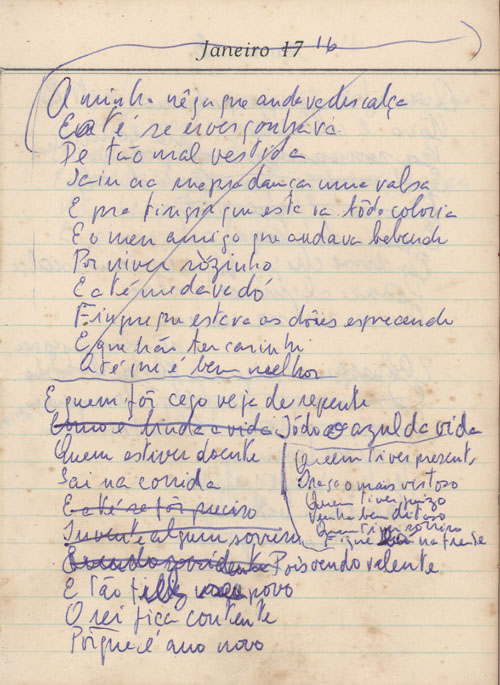 Janeiro 17 16
A minha nêga que andava descalça
E até se envergonhava
De tão mal vestida
Saiu pra dançar uma valsa
E pra fingir que estava tôda
E o meu amigo que andava bebendo
Por viver sòzinho
E até me dava dó
Finge que estava as dôres
E que não ter carinho
Até que é bem melhor
E quem fôr cego veja de repente
Como é linda a vida Tôdo o azul da vida
Quem estiver doente
Sai na corrida
E até se fôr preciso
Invente algum sorriso
Pois vendo valente
E tão feliz povo
O rei fica contente
Porque é ano novo
Quem tiver presente
Traga o mais vistoso
Quem tiver juizo
Venha bem ditoso
Quem tiver sorriso
Fique na frente